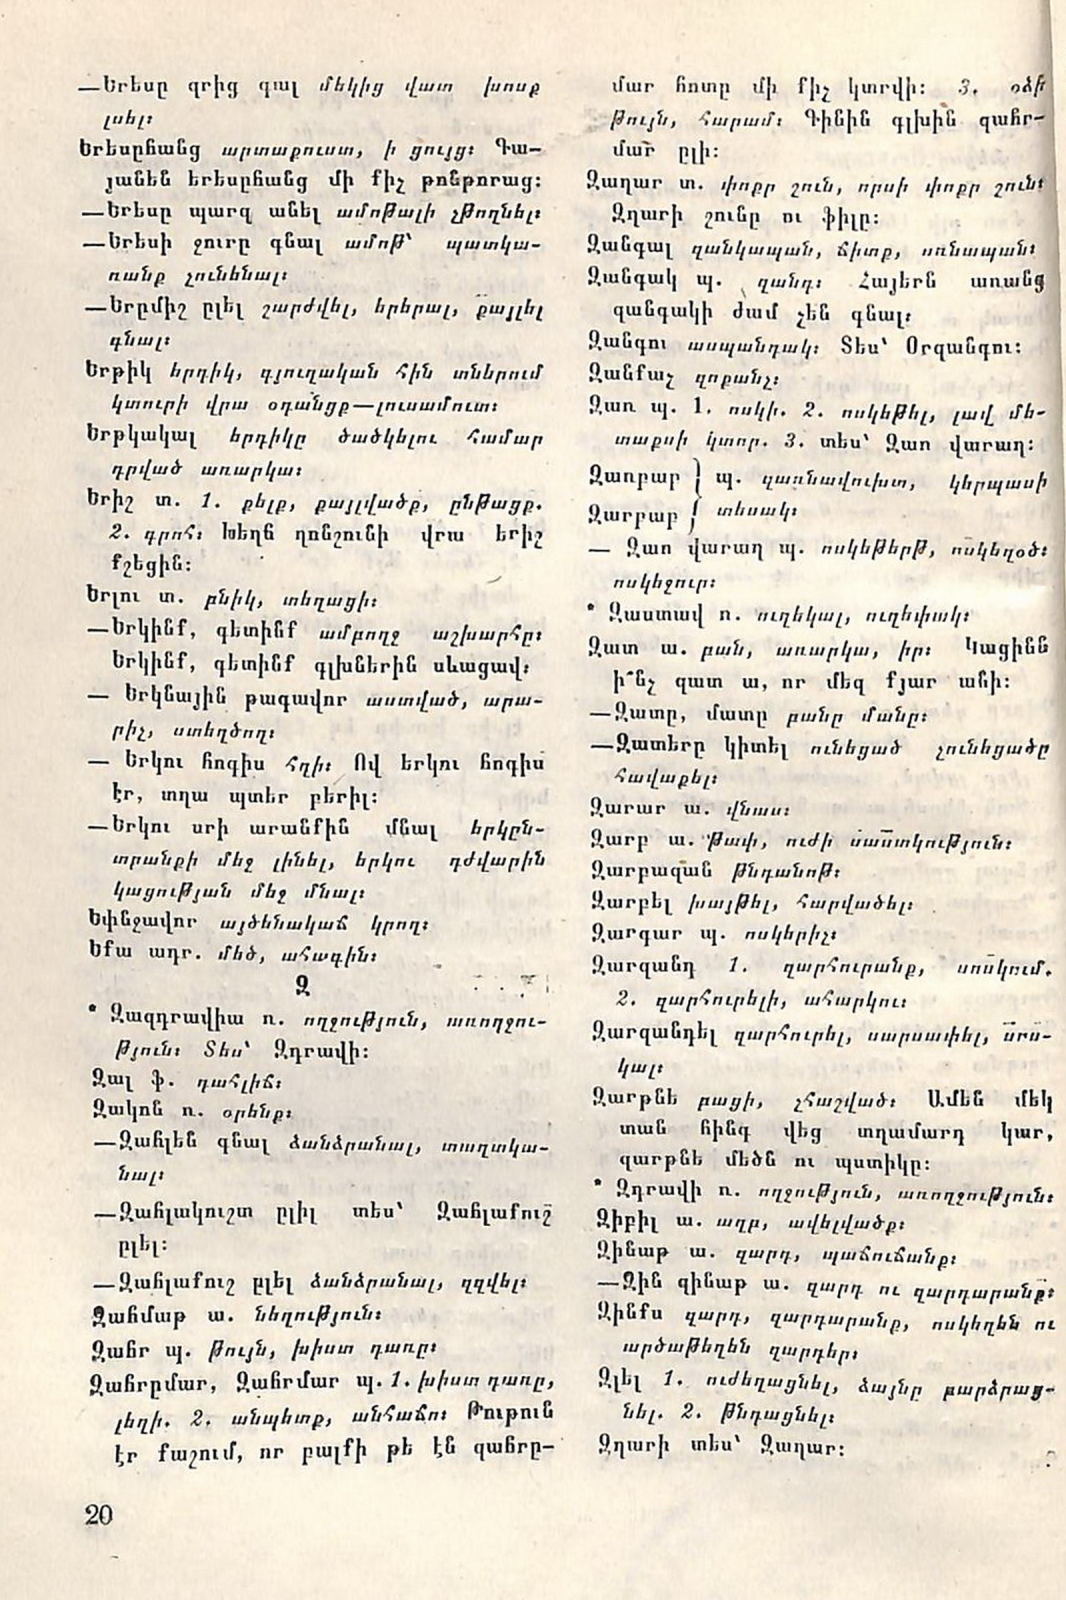 —Երեսը զրից գալ մեկից վատ խոսք
լսել։
Երեսըհանց արտաքուստ, ի ցույց։ Գա—
յանեն երեսըհանց մի քիչ թոնթորաց։
—Երեսը պարզ անել ամոթալի չթողնել։
—Երեսի ջուրը գնալ ամոթ՝ պատկա-
ռանք չունենալ։
—Երըմիշ ըլել շարժվել, երերալ, քայլել
գնալ։
Երթիկ երդիկ, գյուղական հին տներում
կտուրի վրա օդանցք—լուսամուտ։
Երթկակալ երդիկը ծածկելու համար
դրված առարկա։
Երիշ տ. 1. քելք, քայլվածք, ընթացք.
2. գրոհ։ Խեղճ ղոնշունի վրա երիշ
քշեցին։
Երլու տ. բնիկ, տեղացի։
—Երկինք, գետինք ամբողջ աշխարհը։
Երկինք, գետինք գլխներին սևացավ։
— Երկնային թագավոր աստված, արա-
րիչ, ստեղծող։
— Երկու հոգիս հղի։ Ով երկու հոգիս
էր, տղա պտեր բերիլ։
—Երկու սրի արանքին մնալ երկըն-
տրանքի մեջ լինել, երկու դժվարին
կացության մեջ մնալ։
Եփնջավոր այծենակաճ կրող։
Եքա ադր. մեծ, ահագին։
Զ
* Զազդրավիա ռ. ողջություն, առողջու-
թյուն։ Տես՝ Զդրավի։
Զալ ֆ. դահլիճ։
Զակոն ռ. օրենք։
—Զահլեն գնալ ձանձրանալ, տաղտկա-
նալ։
—Զահլակուշտ ըլիլ տես՝ Զահլաքուշ
ըլել։
—Զահլաքուշ ըլել ձանձրանալ, զզվել։
Զահմաթ ա. նեղություն։
Զահր պ. թույն, խիստ դառը։
Զահրըմար, Զահրմար պ. 1. խիստ դառը,
լեղի. 2. անպետք, անհաճո։ Թութուն
էր քաշում, որ բալքի թե էն զահրը—
մար հոտը մի քիչ կտրվի։ 3. օձի
թույն, հարամ։ Գինին գլխին զահր—
մար ըլի։
Զաղար տ. փոքր շուն, որսի փոքր շուն։
Զղարի շունը ու ֆիլը։
Զանգալ զանկապան, ճիտք, սռնապան։
Զանգակ պ. զանգ։ Հայերն առանց
զանգակի ժամ չեն գնալ։
Զանգու ասպանդակ։ Տես՝ Օրզանգու։
Զանքաչ զոքանչ։
Զառ պ. 1. ոսկի. 2. ոսկեթել, լավ մե-
տաքսի կտոր. 3. տես՝ Զառ վարաղ։
Զառբաբ } պ. զառնավուխտ, կերպասի
Զարբաբ } տեսակ։
— Զառ վարաղ պ. ոսկեթերթ, ոսկեղօծ։
ոսկեջուր։
* Զաստավ ռ. ուղեկալ, ուղեփակ։
Զատ ա. բան, առարկա, իր։ Կացինն
ի՞նչ զատ ա, որ մեզ քյար անի։
—Զատը, մատը բանը մանը։
—Զատերը կիտել ունեցած չունեցածը
հավաքել։
Զարար ա. վնաս։
Զարբ ա. թափ, ուժի սաստկություն։
Զարբազան թնդանոթ։
Զարբել խայթել, հարվածել։
Զարգար պ. ոսկերիչ։
Զարզանդ 1. զարհուրանք, սոսկում.
2. զարհուրելի, ահարկու։
Զարզանդել զարհուրել, սարսափել, սոս-
կալ։
Զարթնե բացի, չհաշված։ Ամեն մեկ
տան հինգ վեց տղամարդ կար,
զարթնե մեծն ու պստիկը։
* Զդրավի ռ. ողջություն, առողջություն։
Զիբիլ ա. աղբ, ավելվածք։
Զինաթ ա. զարդ, պաճուճանք։
—Զին զինաթ ա. զարդ ու զարդարանք։
Զինքս զարդ, զարդարանք, ոսկեղեն ու
արծաթեղեն զարդեր։
Զլել 1. ուժեղացնել, ձայնը բարձրաց-
նել. 2. թնդացնել։
Զղարի տես՝ Զաղար։
20